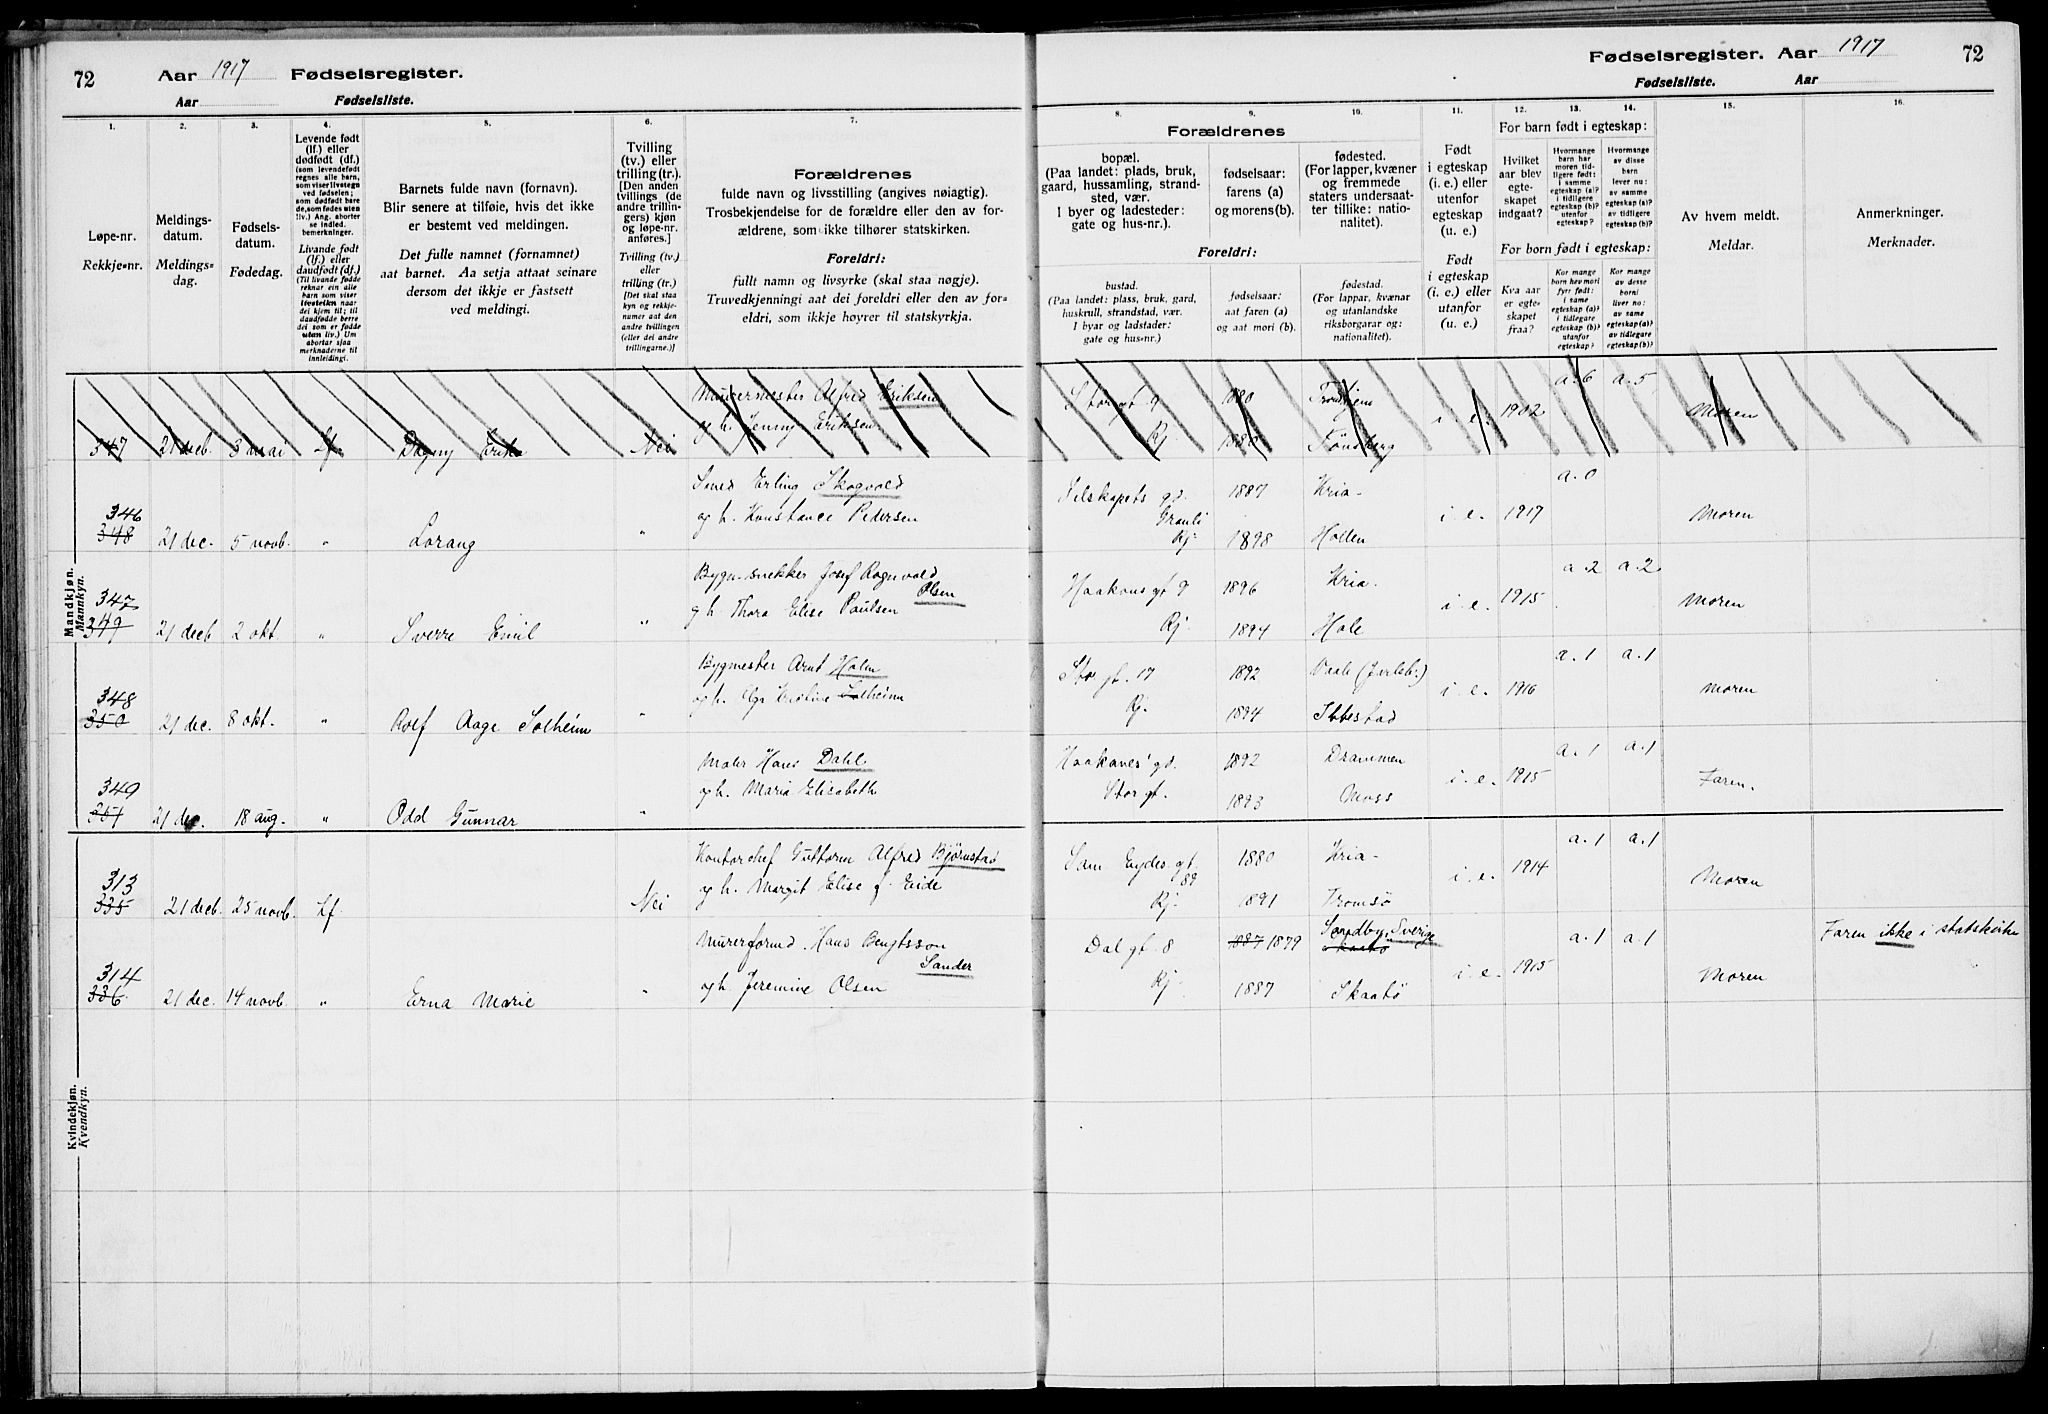 72 Aar 1917 Fødselsregister.
Aar Fødselsliste.
1. 2. 3. 4. 5. 6. 7.
Løpe-nr.
Rekkje-nr.
Meldings-
datum.
Meldings-
dag.
Fødsels-
datum.
Fødedag.
Levende født
(lf.) eller
dødfødt (df.)
(som levendefødt
regnes alle barn,
som viser livstegn
ved fødselen;
som dødfødt bar-
de, som fødes uten
liv.) Ang. aborter
se indled.
bemerkninger.
Livande født
(lf.) eller
daudfødt (df.)
(Til livande fødde
reknar ein alle
born som viser
livsteikn naa-
dei kjem til; til
daudfødde berre
dei som er fødde
utan liv.) Um
abortar sjaa
merknaderne til
innleidingi.
Barnets fulde navn (fornavn).
Blir senere at tilføie, hvis det ikke
er bestemt ved meldingen.
Det fulle namnet (fornamnet)
aat barnet. Aa setja attaat seinare
dersom det ikkje er fastsett
ved meldingi.
Tvilling
(tv.) eller
trilling(tr.).
[Den anden
tvillings (de
andre trillin-
gers) kjøn
og løpe-nr.
anføres.]
Tvilling (tv.)
eller
trilling (tr.)
[Det skal staa
kyn og rekkje-
numer aat den
andre tvillingen
(eller dei andre
trillingarne.)]
Forældrenes
fulde navn og livsstilling (angives nøiagtig).
Trosbekjendelse for de forældre eller den av for-
ældrene, som ikke tilhører statskirken.
Foreldri:
fullt namn og livsyrke (skal staa nøgje).
Truvedkjenningi aat dei foreldri eller den av for-
eldri, som ikkje høyrer til statskyrkja.
Mandkjøn.
Mannkyn.
Murermester Alfred Eriksen
og h. Jenny Eriksen
347 21 dec. 8 mai Lf. Dagny Nei
Smed Erling Skogvold
og h. Konstance Pedersen
346
348 21 dec. 5 novb. " Lorang "
Bygn.snekker Josef Ragnvald
Olsen
og h. Thora Elise Paulsen
347
349 21 decb 2 okt. " Sverre Emil "
Bygmester Arnt Holm
og h. Olga Kristine Solheim
348
350 21 dec. 8 okt. " Rolf Aage Solheim "
Maler Hans Dahl
og h. Maria Elisabeth
349
351 21 dec. 18 aug. " Odd Gunnar "
Kvindekjøn.
Kvendkyn.
Kontorchef Guttorm Alfred Bjørnstad
og h. Margit Elise f. Eide
313
335 21 decb. 25 novb. Lf. Nei
Murerformd. Hans Bengtsson
Sander
og h. Jeremine Olsen
314
336 21 dec. 14 novb. " Erna Marie "
Fødselsregister. Aar 1917 72
Fødselsliste. Aar
8. 9. 10. 11. 12. 13. 14. 15. 16.
Forældrenes
bopæl.
(Paa landet: plads, bruk,
gaard, hussamling, strand-
sted, vær.
I byer og ladesteder:
gate og hus-nr.).
fødselsaar:
farens (a)
og morens (b).
fødested.
(For lapper, kvæner
og fremmede
staters undersaat-
ter tillike: natio-
nalitet).
Foreldri:
bustad.
(Paa landet: plass, bruk, gard,
huskrull, strandstad, vær.
I byar og ladstader:
gate og hus-nr.)
fødselsaar:
aat faren (a)
og aat mori (b).
fødestad.
(For lappar, kvænar
og utanlandske
riksborgarar og:
nationalitet).
Født
i egteskap
(i. e.) eller
utenfor
egteskap
(u. e.)
Født
i egteskap
(i. e.) eller
utanfor
(u. e.)
For barn født i egteskap:
Hvilket
aar blev
egte-
skapet
indgaat?
Hvormange
barn har
moren tid-
ligere født:
i samme
egteskap (a)?
i tidligere
egteskap (b)?
utenfor
egteskap?
Hvormange
av disse
barn
lever nu:
av samme
egteskap (a)?
av tidligere
egteskap (b)?
For born født i egteskap:
Kva aar
er egte-
skapet
fraa?
Kor mange
born hev mori
fyrr født:
i same
egteskap (a)?
i tidlegare
egteskap (b)?
utanfor
egteskap?
Kor mange
av desse
borni
liver no:
av same
egteskap (a)?
av tidlegare
egteskap (b)?
Av hvem meldt.
Meldar.
Anmerkninger.
Merknader.
Storgt 9 1880 Trondhjem i. e. 1902 a. 6 a. 5 Moren
Rj. 1880 Tønsberg
Selskapets gd. 1887 Kria. i. e. 1917 a. 0 Moren
Granli
Rj. 1898 Holten
Haakons gt 9 1896 Kria. i. e. 1915 a. 2 a. 2 Moren
Rj. 1894 Hole
Stor gt. 17 1892 Vaale (Jarlsb.) i. e. 1916 a. 1 a. 1 Moren
Rj. 1894 Ibbestad
Haakanes' gd. 1892 Drammen i. e. 1915 a. 1 a. 1 Faren.
Stor gt. 1893 Moss
Sam Eydes gt. 1880 Kria. i. e. 1914 a. 1 a. 1 Moren
89
Rj. 1891 Tromsø
Dal gt. 8 1887 1879 Sverige i. e. 1915 a. 1 a. 1 Moren Faren ikke i statskirken
Skaatø
Rj. 1887 Skaatø